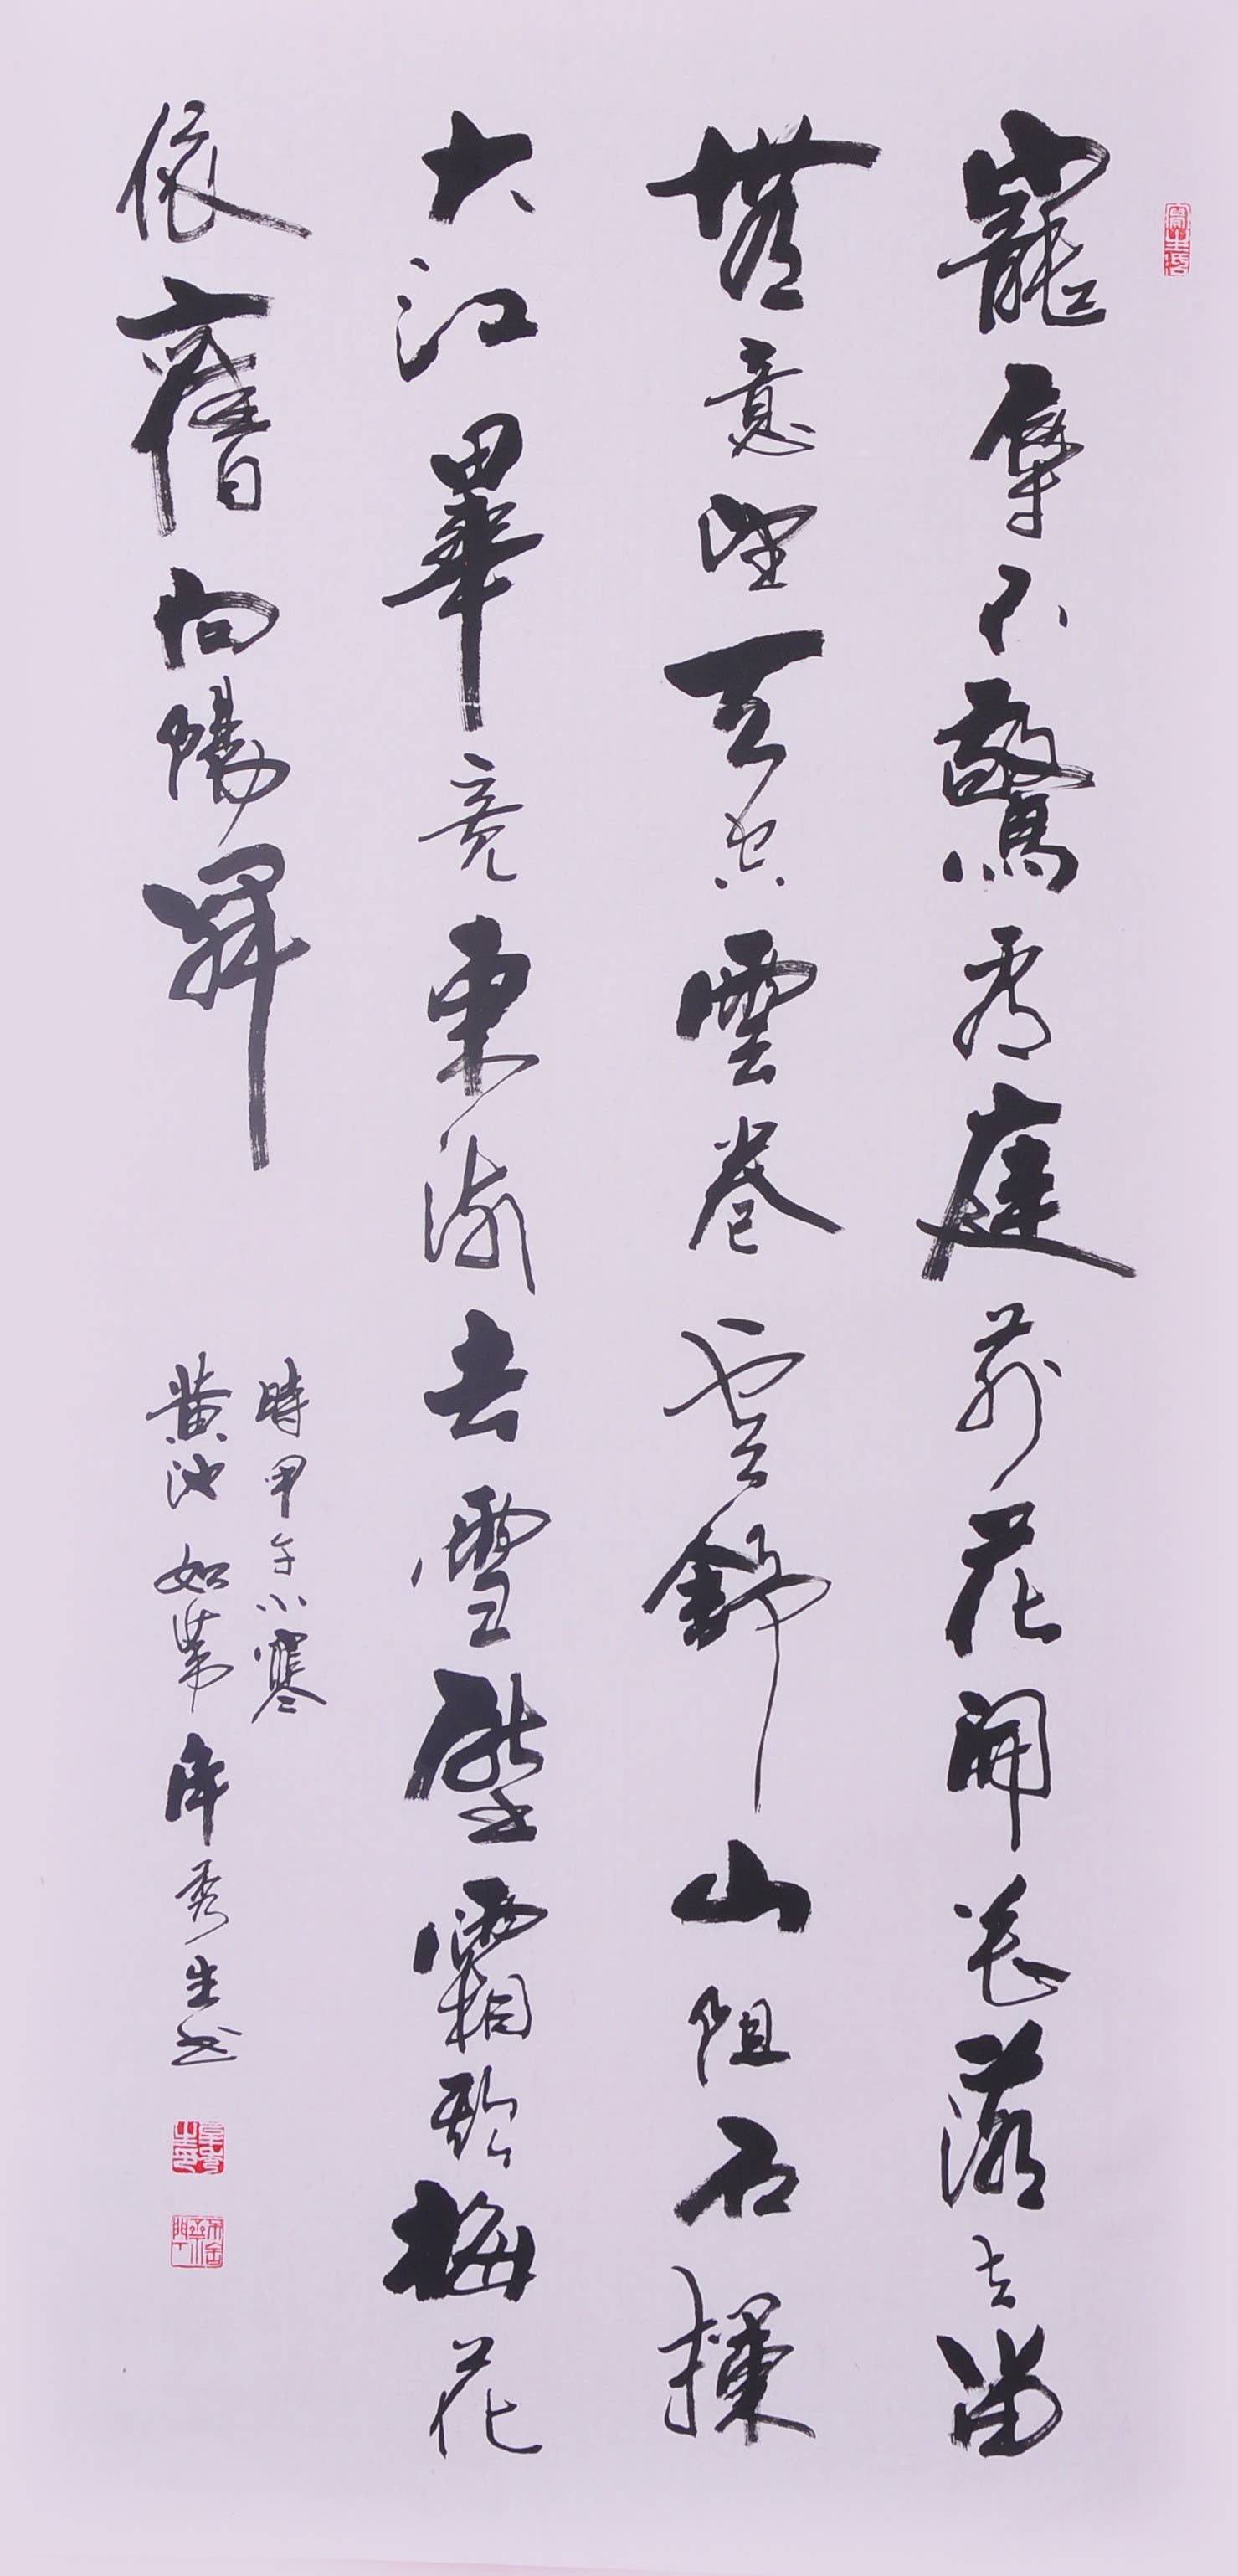 寵辱不驚看庭前花開花落去留
無意望天空雲卷雲舒山阻石攔
大江畢竟東流去雪壓霜欺梅花
依舊向陽開
時甲午小寒
黃池如葦 秀生书